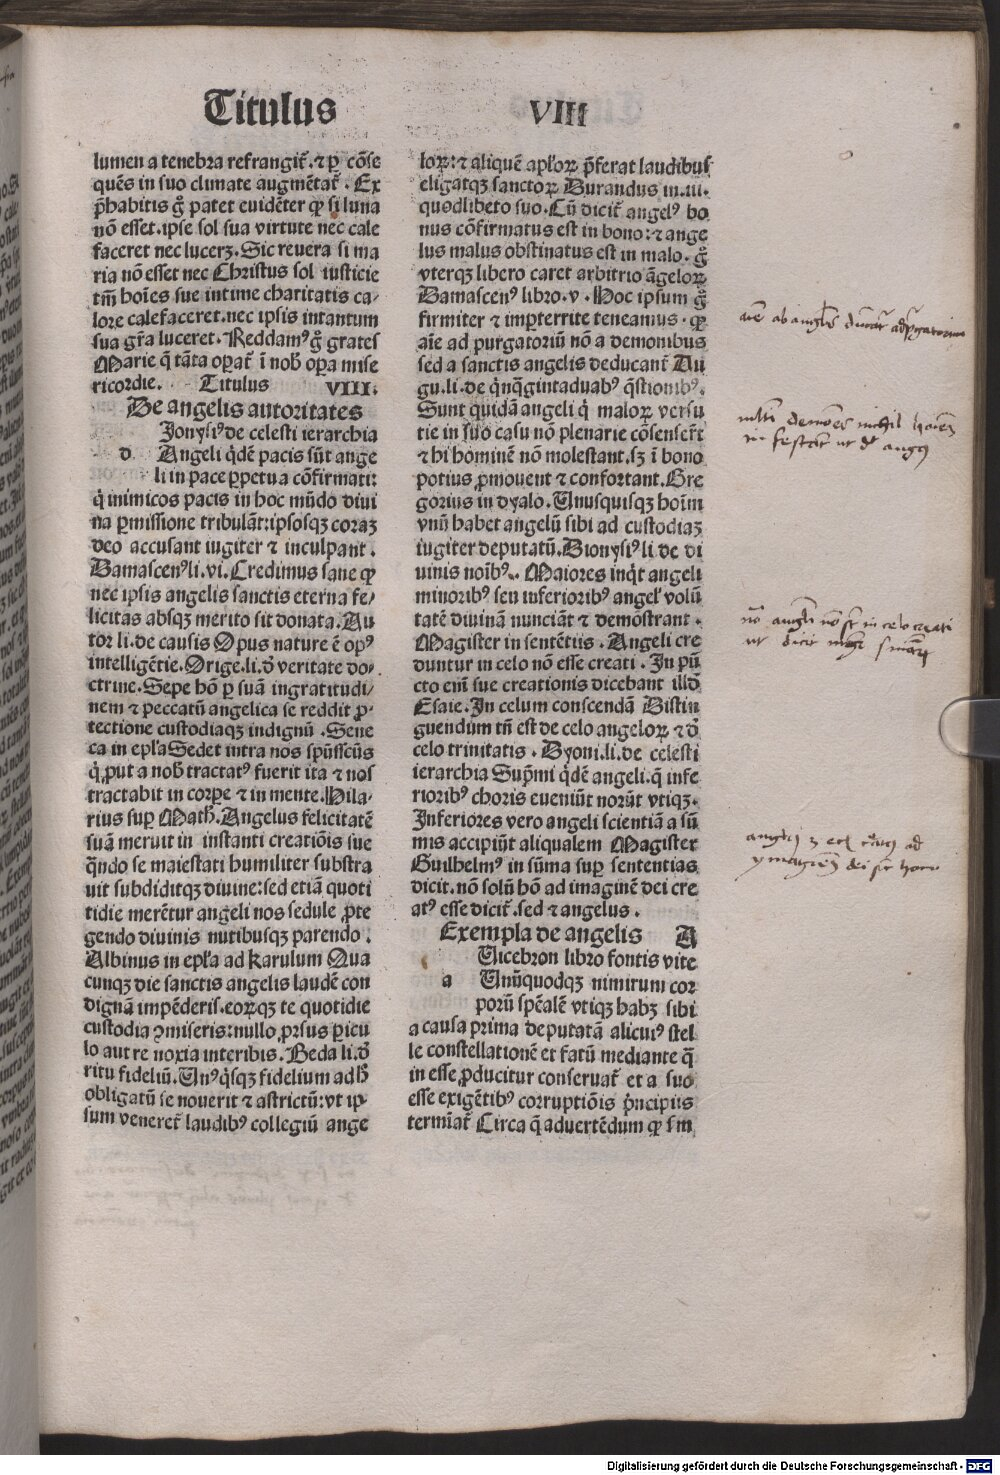 Titulus VIII
lumen a tenebra refrangit̄. ⁊ ꝑ cōse
quēs in suo climate augmētat̄. Ex
p̄habitis g̊ patet euidēter ꝙ si luna
nō esset. ipse sol sua virtute nec cale
faceret nec lucerꝫ. Sic reuera si ma
ria nō esset nec Christus sol iusticie
tm̄ hoīes sue intime charitatis ca⸗
lore calefaceret. nec ipsis intantum
sua gr̄a luceret. Reddamꝰ g̊ grates
Marie q̄ tāta oꝑat̄ ī nob̄ oꝑa mise
ricordie. Titulus VIII.
De angelis autoritates
Jonysiꝰ de celesti ierarchia
d Angeli qd̄e pacis sūt ange
li in pace ꝑpetua cōfirmati:
q̇ inimicos pacis in hoc mūdo diui
na ꝑmissione tribulāt: ipsosqꝫ coraꝫ
deo accusant iugiter ⁊ inculpant.
Damascenꝰ li. vi. Credimus sane ꝙ
nec ipsis angelis sanctis eterna fe⸗
licitas absqꝫ merito sit donata. Au
tor li. de causis Opus nature ē opꝰ
intelligētie. Orige. li. ď veritate do⸗
ctrine. Sepe hō ꝑ suā ingratitudi⸗
nem ⁊ peccatū angelica se reddit ꝓ⸗
tectione custodiaqꝫ indignū. Sene
ca in epl̄a Sedet intra nos spūssc̄us
q̇ ꝓut a nob̄ tractatꝰ fuerit ita ⁊ nos
tractabit in corꝑe ⁊ in mente. Hila⸗
rius suꝑ Math̄. Angelus felicitatē
suā meruit in instanti creatiōis sue
qn̄do se maiestati humiliter substra
uit subdiditqꝫ diuine: sed etiā quoti
tidie merētur angeli nos sedule ꝓte
gendo diuinis nutibusqꝫ parendo.
Albinus in epl̄a ad Karulum Qua
cunqꝫ die sanctis angelis laudē con
dignā impēderis. eoꝝqꝫ te quotidie
custodia ꝯmiseris: nullo ꝓrsus ꝑicu
lo aut re noxia interibis. Beda li. ď
ritu fideliū. Unꝰqꝫsqꝫ fidelium ad h̄
obligatū se nouerit ⁊ astrictū: vt ip⸗
sum veneret̄ laudibꝰ collegiū ange
loꝝ: ⁊ aliquē apl̄oꝝ p̄ferat laudibus
eligatqꝫ sanctoꝝ Durandus in. iii.
quodlibeto suo. Cū dicit̄ angelꝰ bo
nus cōfirmatus est in bono: ⁊ ange
lus malus obstinatus est in malo. g̊
vterqꝫ libero caret arbitrio āgeloꝝ
Damascenꝰ libro. v. Hoc ipsum g̊
firmiter ⁊ imꝑterrite teneamus. ꝙ
aīe ad purgatoriū nō a demonibus
sed a sanctis angelis deducant̄ Au
gu. li. de qn̄qgintaduabꝰ q̄stionibꝰ.
Sunt quidā angeli q̇ maloꝝ versu
tie in suo casu nō plenarie cōsenser̄t
⁊ hi hominē nō molestant. sꝫ ī bono
potius ꝓmouent ⁊ confortant. Gre
gorius in dyalo. Unusquisqꝫ hoīm
vnū habet angelū sibi ad custodiaꝫ
iugiter deputatū. Dionysiꝰ li. de di
uinis noībꝰ. Maiores inq̇t angeli
minoribꝰ seu inferioribꝰ angel̄ volū
tatē diuinā nunciāt ⁊ demōstrant.
Magister in sentētiis. Angeli cre
duntur in celo nō esse creati. In pū
cto enī sue creationis dicebant illď
Esaie. In celum conscendā Distin
guendum tn̄ est de celo angeloꝝ ⁊ ď
celo trinitatis. Dyoni. li. de celesti
ierarchia Supmi qd̄e angeli. q̇ infe
rioribꝰ choris eueniūt norūt vtiqꝫ.
Inferiores vero angeli scientiā a sū
mis accipiūt aliqualem Magister
Guilhelmꝰ in sūma suꝑ sententias
dicit. nō solū hō ad imaginē dei cre
atꝰ esse dicit̄. sed ⁊ angelus.
Exempla de angelis A
Uicebron libro fontis vite
a Unūquodqꝫ nimirum cor
porū spēalē vtiqꝫ habꝫ sibi
a causa prima deputatā alicuiꝰ stel
le constellationē et fatū mediante q̄
in esse ꝓducitur conseruat̄ et a suo
esse exigētibꝰ corruptiōis p̄ncipiis
termīat̄ Circa q̄ aduertēdum ꝙ sm̄
Digitalisierung gefördert durch die Deutsche Forschungsgemeinschaft - DFG